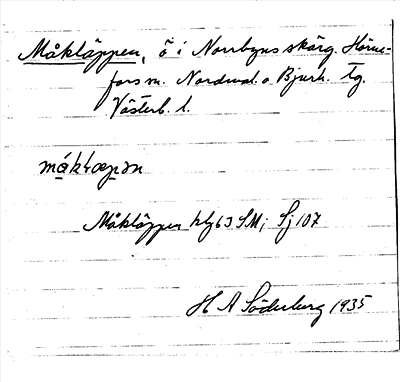 Måkläppen, ö i Norrbyns skärg. Hörne-
fors sn. Nordmal. o Bjurh. tg.
Västerb. l.
Måkläppen hlg 63 SM; Sj 107
H A Söderberg 1935